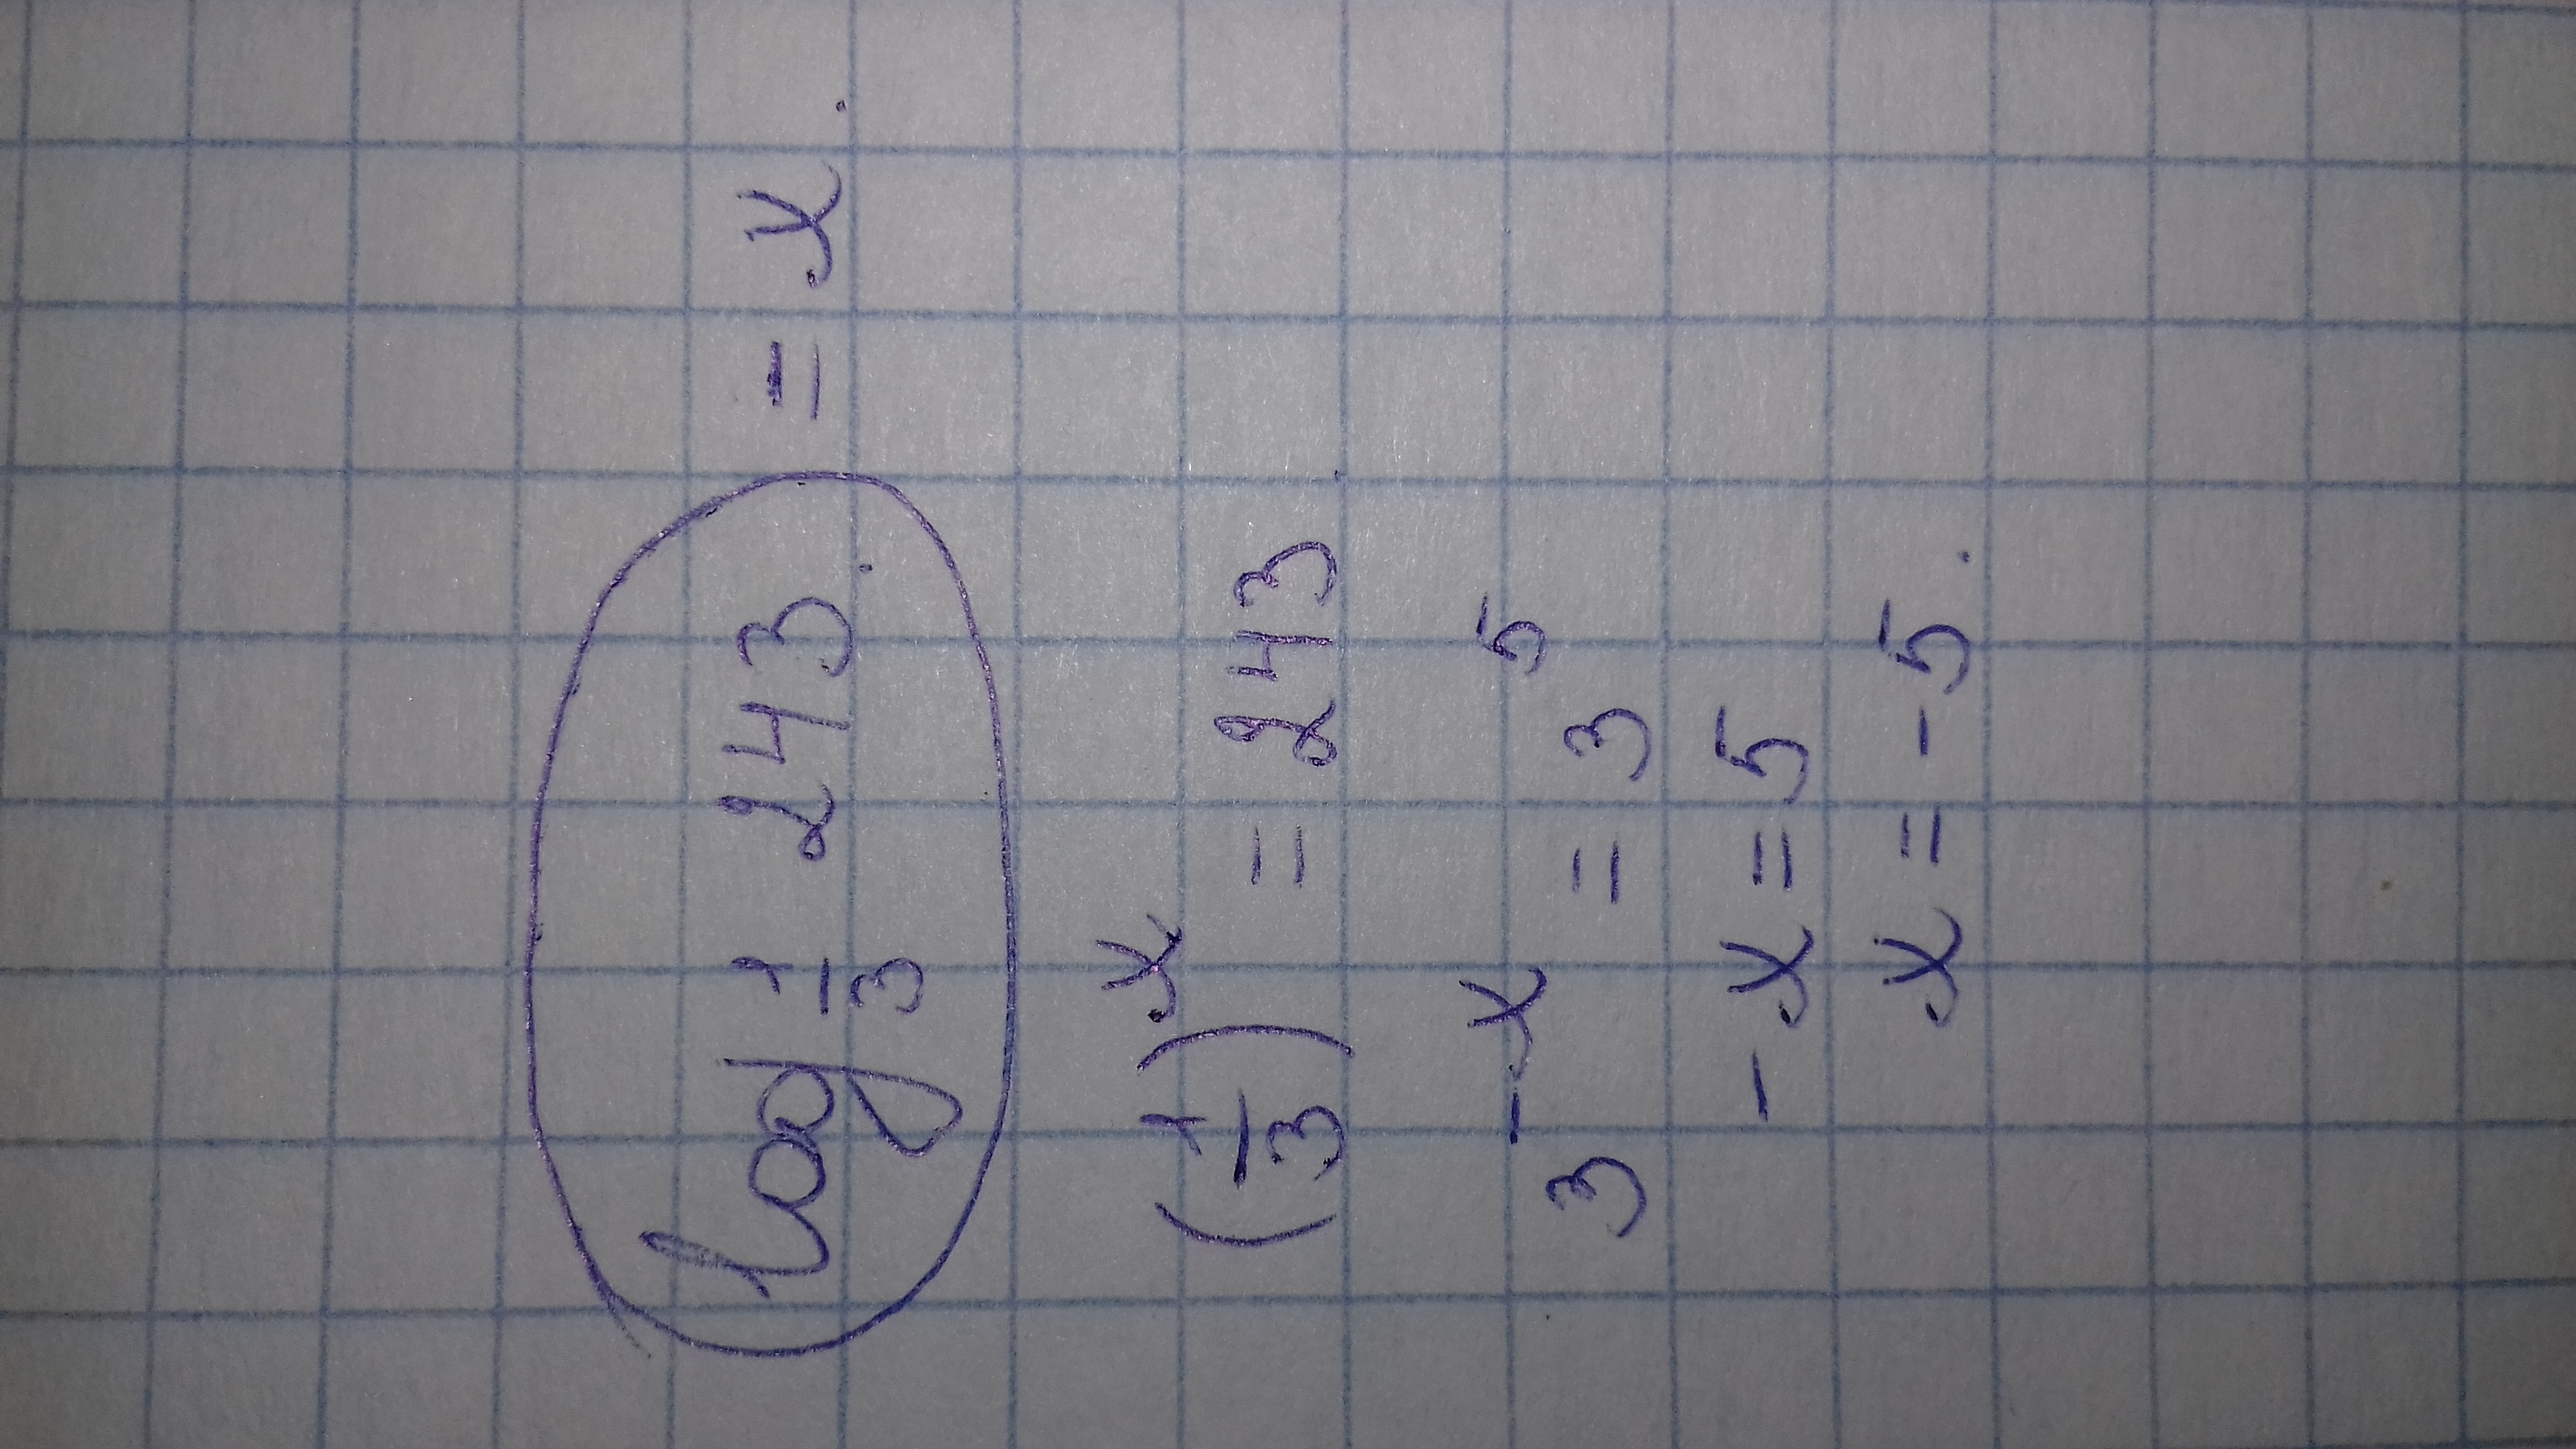 log 1/3 243. = x.
(1/3)^x = 243
3^-x = 3^5
-x = 5
x = -5.